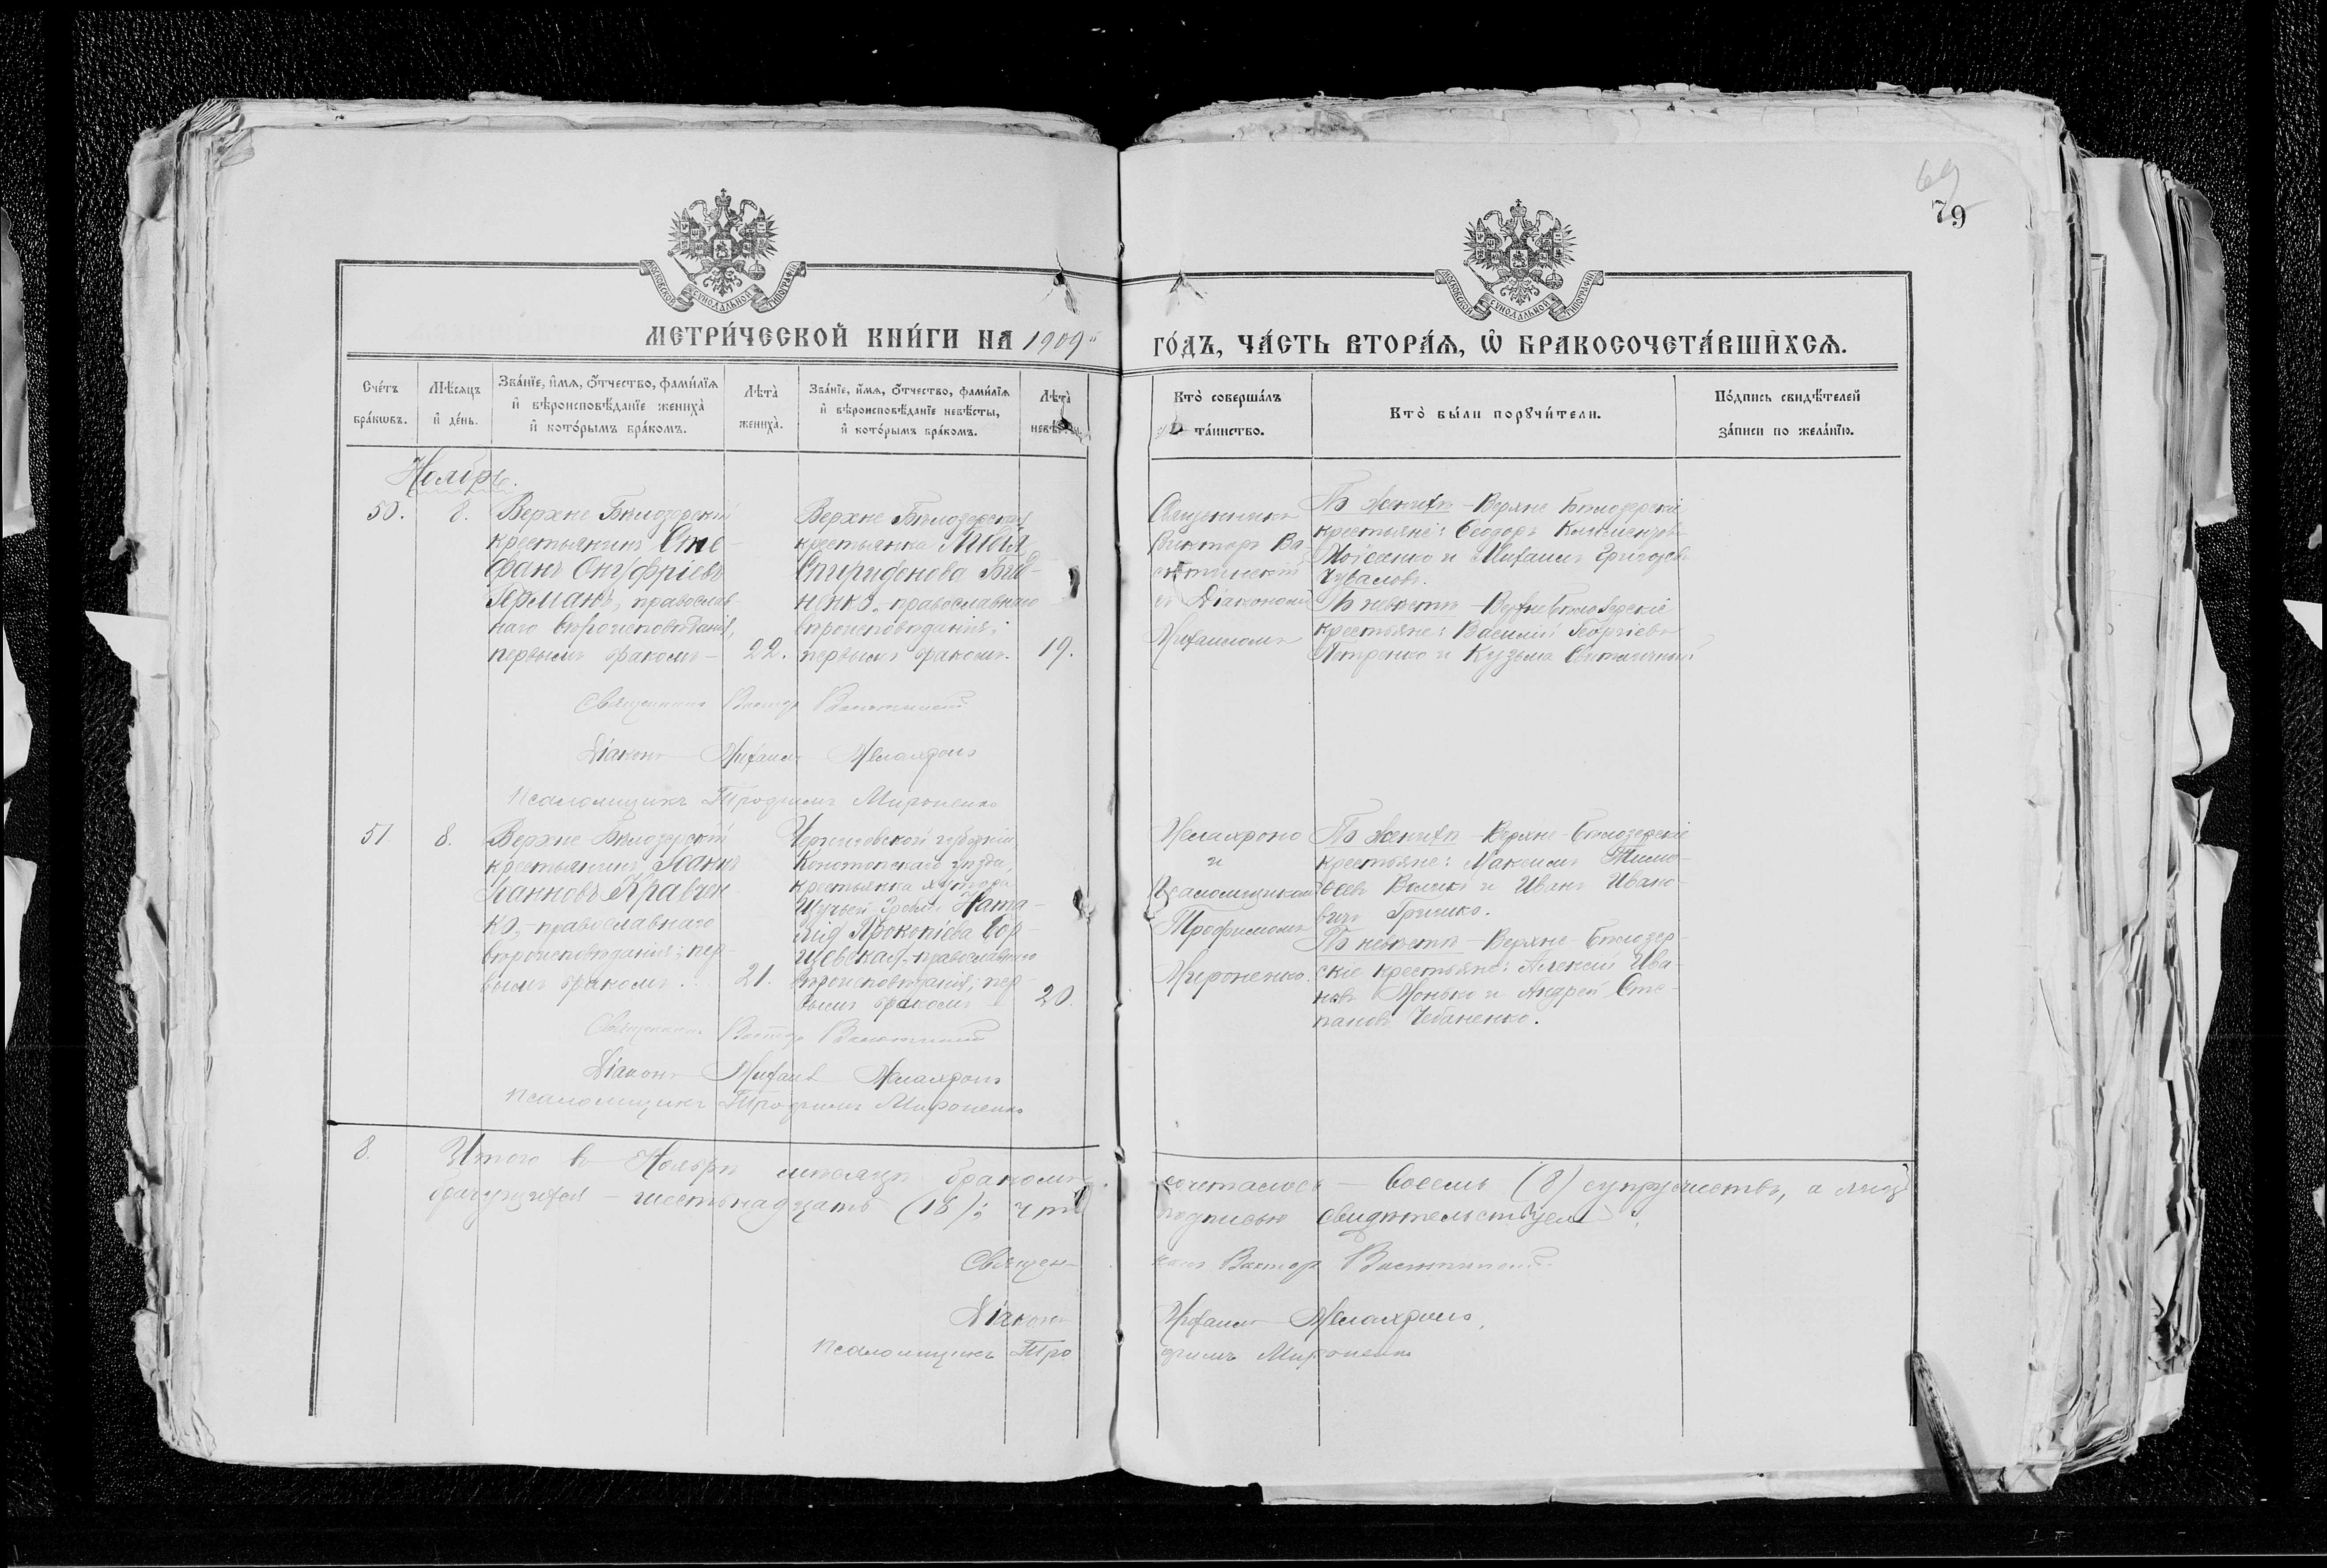 69
79
МОСКОВСКОЙ СѴНОДАЛЬНОЙ ТИПОГРАФІИ
МОСКОВСКОЙ СѴНОДАЛЬНОЙ ТИПОГРАФІИ
МЕТРИ́ЧЕСКОЙ КНИ́ГИ НА 1909
ГО́ДЪ, ЧА́СТЬ ВТОРА́Я, Ѽ БРАКОСОЧЕТА́ВШИХСЯ.
Сче́тъ бра́кѡвъ.
Мѣ́сяцъ и де́нь.
Зва́нїе, и́мя, ѻ҆́тчество, фами́лїя
и вѣроисповѣ́данїе жениха̀
и кото́рымъ бра́комъ.
Лѣта̀ жениха̀.
Зва́нїе, и́мя, ѻ҆́тчество, фами́лїя
и вѣроисповѣ́данїе невѣ́сты,
и кото́рымъ бра́комъ.
Лѣта̀
Кто̀ соверша́лъ
та́инство.
Кто̀ бы́ли порꙋчи́тели.
По́дпись свидѣ́телей
за́писи по жела́нїю.
Ноябрь.
50.
8.
Верхне Бѣлозерскій
крестьянинъ Сте-
фанъ Онуфріевъ
Германъ, православ
наго вѣроисповѣданія,
первымъ бракомъ
22.
Верхне Бѣлозерская
крестьянка
Спиридонова
православнаго
вѣроисповѣданія;
первымъ бракомъ.
19.
Священникъ
Викторъ
съ Діакономъ
Михаиломъ
По женихѣ - Верхне Бѣлозерскіе
крестьяне: Ѳеодоръ Климентовъ
и Михаилъ Григорьевъ
Чувасовъ.
По невѣстѣ - Верхне Бѣлозерскіе
крестьяне: Василій Георгіевъ
Петренко и Кузьма
Священникъ Викторъ
Діаконъ Михаилъ
Псаломщикъ Трофимъ Мироненко
51
8.
Верхне Бѣлозерскій
крестьянинъ Іоаннъ
Іоанновъ Кравчен-
ко, православнаго
вѣроисповѣданія; пер-
вымъ бракомъ.
21.
Черниговской губерніи,
Конотопскаго уѣзда,
крестьянка хутора
Ната-
лія Прокопіева
православнаго
вѣроисповѣданія; пер-
вымъ бракомъ
20.
и
Псаломщикомъ
Трофимомъ
Мироненко.
По женихѣ - Верхне Бѣлозерскіе
крестьяне: Максимъ Тимо-
ѳеевъ и Иванъ Ивано-
вичъ Гришко.
По невѣстѣ - Верхне Бѣлозер-
скіе крестьяне: Алексій Ива-
новъ и Андрей Сте-
пановъ Чебаненко.
Священникъ Викторъ
Діаконъ Михаилъ
Псаломщикъ Трофимъ Мироненко
8.
Итого въ Ноябрѣ мѣсяцѣ бракомъ сочеталось - восемь (8) супружествъ, а лицъ
брачущихся - шестьнадцать (16); что подписью свидѣтельствуемъ:
Священ- никъ Викторъ
Діаконъ Михаилъ
Псаломщикъ Тро фимъ Мироненко